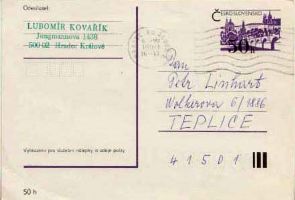 Odesílatel:
LUBOMÍR KOVAŘÍK
Jungmannova 1436
500 02 Hradec Králové
ČESKOSLOVENSKO
50h
Pan
Petr Linhart
Wolkerova 6/1886
TEPLICE
41501
Vyhrazeno pro služební nálepky a údaje pošty
50 h